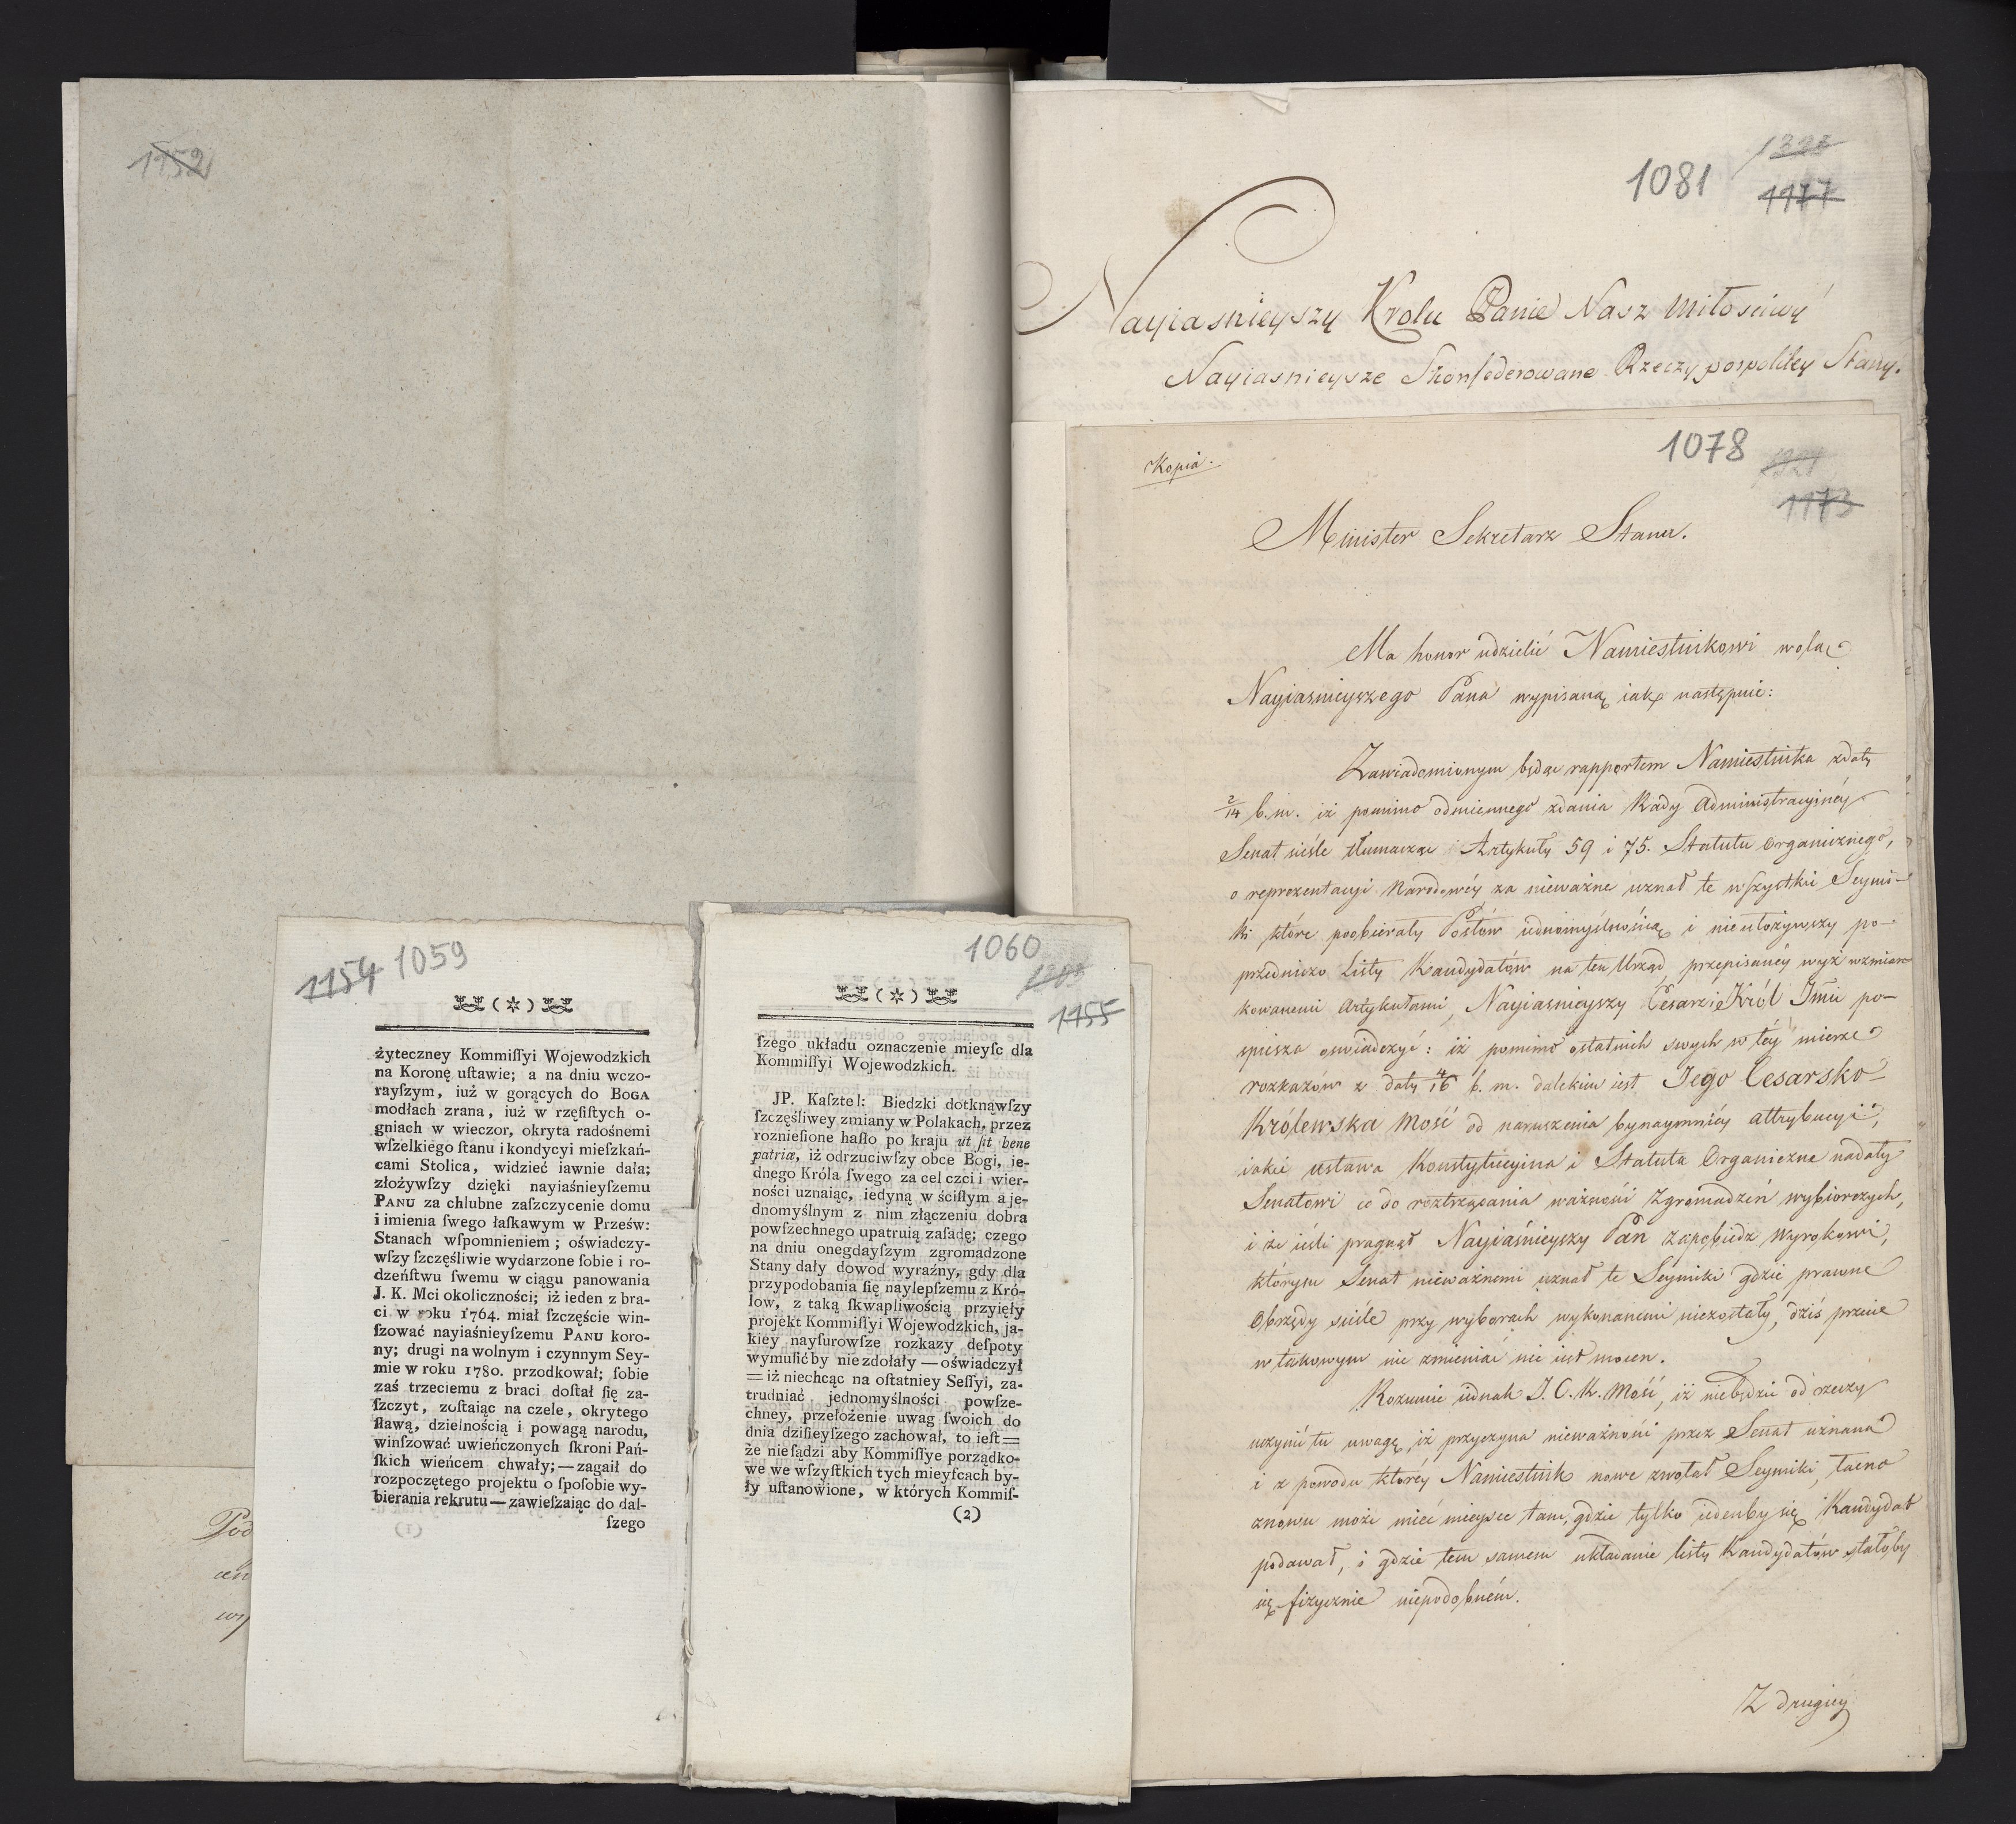 1152
Pod
1154 1059
(*)
żyteczney Kommiſſyi Wojewodzkich
na Koronę uſtawie; a na dniu wczo-
rayſzym, iuż w gorących do BOGA
modłach zrana, iuż w rzęſiſtych o-
gniach w wieczor, okryta radośnemi
wſzelkiego ſtanu i kondycyi mieſzkań-
cami Stolica, widzieć iawnie dała;
złożywſzy dzięki nayiaśnieyſzemu
PANU za chlubne zaſzczycenie domu
i imienia ſwego łaſkawym w Prześw:
Stanach wſpomnieniem; oświadczy-
wſzy ſzczęśliwie wydarzone ſobie i ro-
dzeńſtwu ſwemu w ciągu panowania
J. K. Mci okoliczności; iż ieden z bra-
ci w roku 1764. miał ſzczęście win-
ſzować nayiaśnieyſzemu PANU koro-
ny; drugi na wolnym i czynnym Sey-
mie w roku 1780. przodkował; ſobie
zaś trzeciemu z braci doſtał ſię za-
ſzczyt, zoſtaiąc na czele, okrytego
ſławą, dzielnością i powagą narodu,
winſzować uwieńczonych ſkroni Pań-
ſkich wieńcem chwały;—zagaił do
rozpoczętego projektu o ſpoſobie wy-
bierania rekrutu—zawieſzaiąc do dal-
ſzego
(1)
1060
1155
(*)
ſzego układu oznaczenie mieyſc dla
Kommiſſyi Wojewodzkich.
JP. Kaſztel: Biedzki dotknąwſzy
ſzczęśliwey zmiany w Polakach, przez
roznieſione haſło po kraju ut ſit bene
patriæ, iż odrzuciwſzy obce Bogi, ie-
dnego Króla ſwego za cel czci i wier-
ności uznaiąc, iedyną w ściſłym a je-
dnomyślnym z nim złączeniu dobra
powſzechnego upatruią zaſadę; czego
na dniu onegdayſzym zgromadzone
Stany dały dowod wyraźny, gdy dla
przypodobania ſię naylepſzemu z Kró-
low, z taką ſkwapliwością przyięły
projekt Kommiſſyi Wojewodzkich, ja-
kiey nayſurowſze rozkazy deſpoty
wymuſić by nie zdołały — oświadczył
= iż niechcąc na oſtatniey Seſſyi, za-
trudniać jednomyślności powſze-
chney, przełożenie uwag ſwoich do
dnia dziſieyſzego zachował, to ieſt=
że nieſądzi aby Kommiſſye porządko-
we we wſzyſtkich tych mieyſcach by-
ły uſtanowione, w których Kommiſ-
(2)
1081
1177
Nayiasnieyszy Krolu Panie Nasz Miłosciwy
Nayiasnieysze Skonfederowane Rzeczypospolitey Stany.
Kopia.
1078
1173
Minister Sekretarz Stanu.
Ma honor udzielić Namiestnikowi wolą
Nayiasnieyszego Pana wypisaną iak następuie:
Zawiadomionym będąc rapportem Namiestnika z daty
2/14 b. m. iż pomimo odmiennego zdania Rady Administracyiney
Senat ściśle tłumacząc Artykuły 59 i 75. Statutu organicznego,
o reprezentacyi Narodowéy za nieważne uznał te wszystkie Seymi-
ki które poobierały Posłów iednomyślnością i nieułożywszy po-
przedniczo Listy Kandydatów na ten Urząd, przepisanéy wyż wzmian-
kowanemi Artykułami, Nayiasnieyszy Cesarz i Król Jmć po-
spiesza oświadczyć: iż pomimo ostatnich swych w téy mierze
rozkazów z daty 4/16 b. m. dalekim iest Jego Cesarsko-
Królewska Mość od naruszenia bynaymniéy attrybucyi,
iakie ustawa Konstytucyina i Statuta Organiczne nadały
Senatowi co do roztrząsania ważności Zgromadzeń wybiorczych,
i że ieśli pragnął Nayiaśnieyszy Pan zapobiedz Wyrokowi,
którym Senat nieważnemi uznał te Seymiki gdzie prawne
Obrzędy ściśle przy wyborach wykonanemi niezostały, dziś przecie
w takowym nic zmieniać nie iest mocen.
Rozumie iednak J. C. K. Mość, iż niebędzie od rzeczy
uczynić tu uwagę, iż przyczyna nieważności przez Senat uznana
i z powodu któréy Namiestnik nowe zwołał Seymiki, łacno
znowu może mieć mieysce tam, gdzie tylko iedenby się Kandydat
podawał, i gdzie tem samem układanie listy Kandydatów stałoby
się fizycznie niepodobném.
Z drugiéy